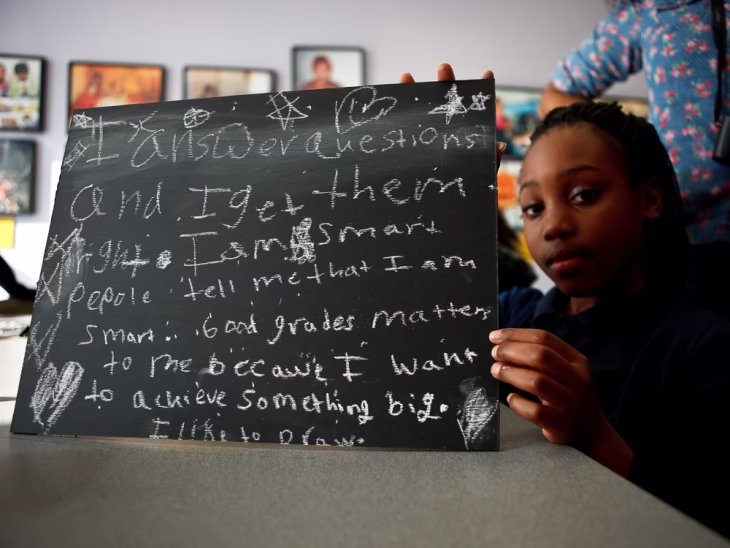 I answer questions
and I get them
right. I am smart
pepole tell me that I am
smart. Good grades matters
to me because I want
to achieve something big.
I like to Draw.